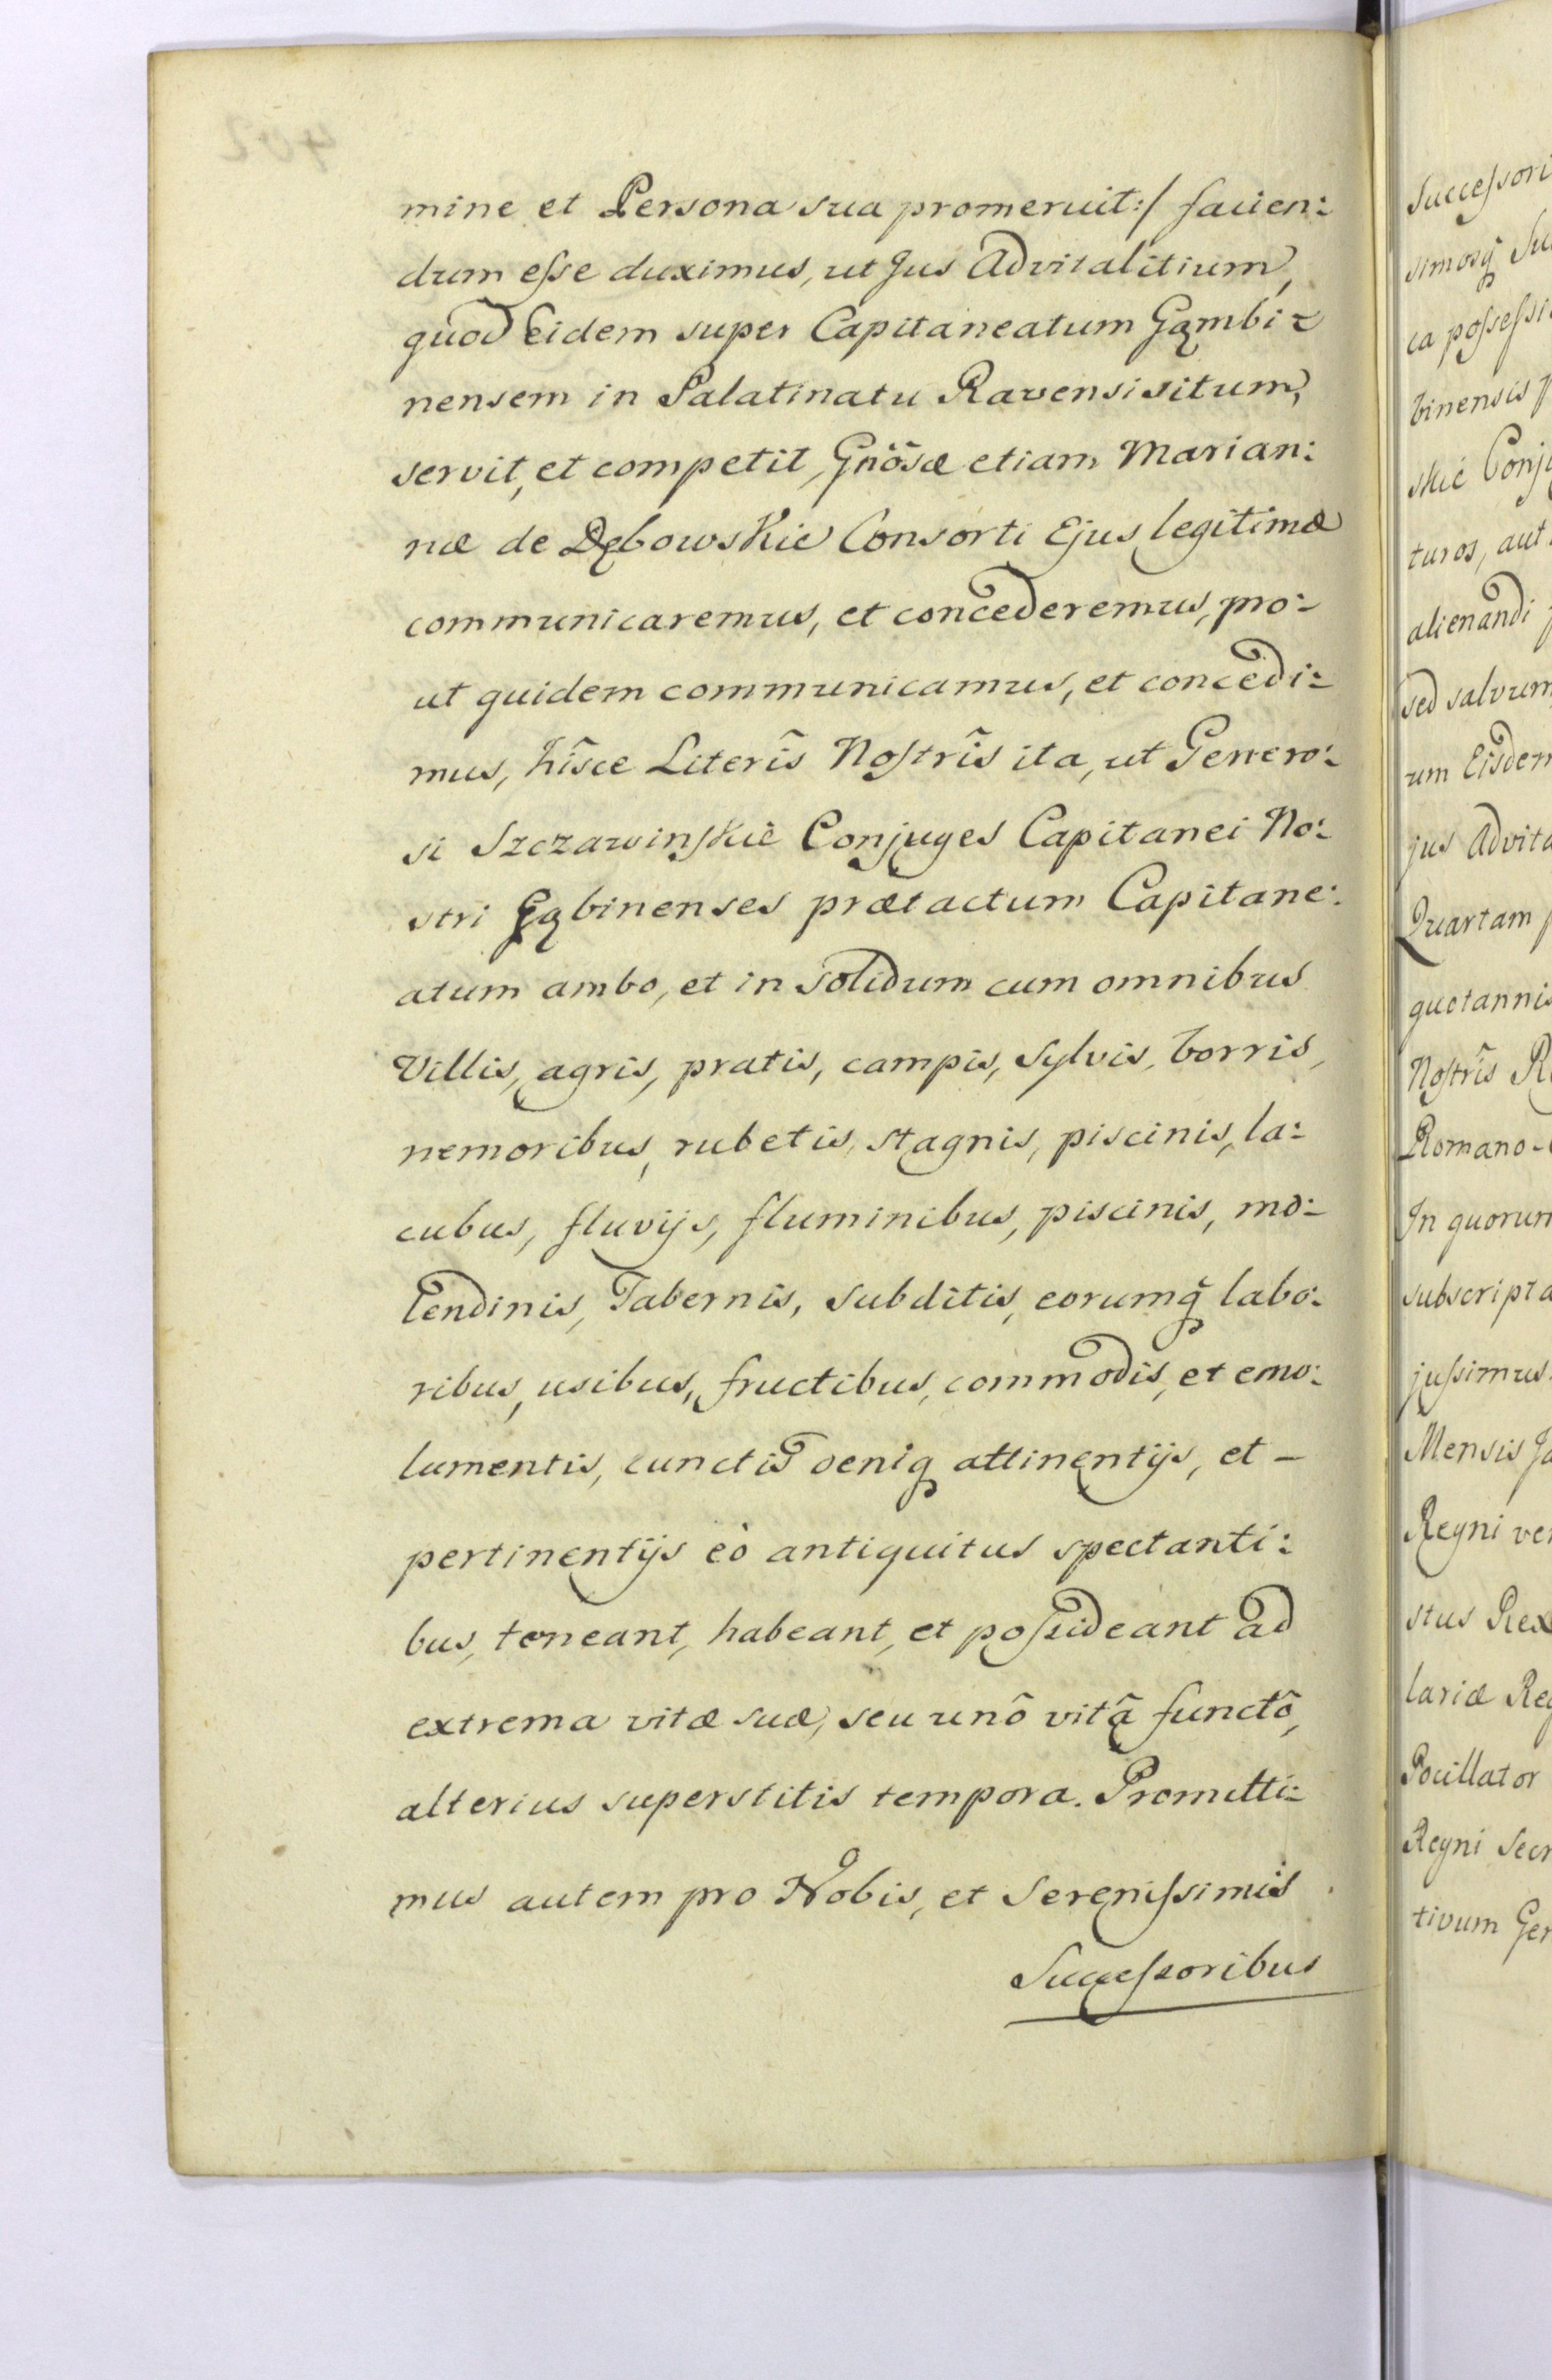 mine et Persona sua promeruit:/ facien:
drum eſse duximus, ut Jus Advitalitium,
quod Eidem super Capitaneatum Gąmbi:
nensem in Palatinatu Ravensi situm,
servit, et competit, Gnõsæ etiam Marian:
næ de Dębowskie Consorti Ejus legitimæ
communicaremus, et concederemus, pro:
ut quidem communicamus, et concedi:
mus, hîsce Literîs Noſtrîs ita, ut Genero:
si Szczawinſkie Conjuges Capitanei No:
stri Gąbinenses prætactum Capitane:
atum ambo, et in solidum cum omnibus
Villis, agris, pratis, campis, Sylvis, borris,
nemoribus, rubetis, stagnis, piscinis, la:
cubus, fluvijs, fluminibus, piscinis, mo:
lendinis, Tabernis, subditis, eorumq́ labo:
ribus, usibus, fructibus, commodis, et emo:
lumentis, cunctis deniq attinentijs, et –
pertinentijs eò antiquitus spectanti:
bus, teneant, habeant, et poſsideant ad
extrema vitæ suæ, seu unô vitâ functô,
alterius superstitis tempora. Promitti:
mus autem pro Nobis, et Sereniſsimis
Succeſsoribus
402
Succeſsori
simosq́ Su
ca poſseſsi
binensis p
skie Conju
turos, aut
alienandi p
sed salvum
um Eisdem
jus Advita
Quartam p
quotannis
Noſtrîs R
Romano-
In quorum
subscripta
juſsimus.
Mensis Ja
Regni ver
stus Rex
lariæ Reg
Pocillator
Regni Secr
tivum Gen